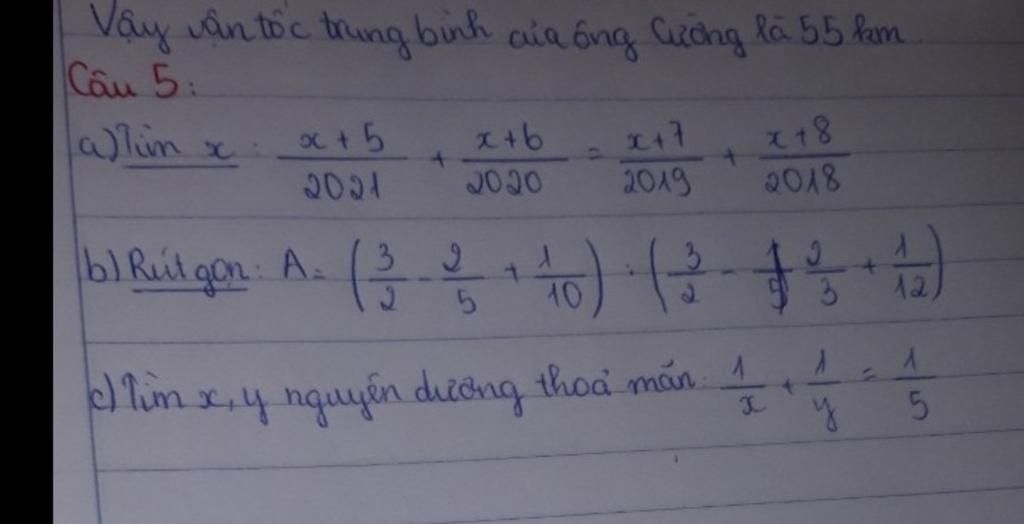 Vậy vận tốc trung bình của ông Cường là 55 km.
Câu 5:
a) Tìm x: \frac{x+5}{2021} + \frac{x+6}{2020} = \frac{x+7}{2019} + \frac{x+8}{2018}
b) Rút gọn: A = (\frac{3}{2} - \frac{2}{5} + \frac{1}{10}) : (\frac{3}{2} - \frac{2}{3} + \frac{1}{12})
c) Tìm x, y nguyên dương thoả mãn: \frac{1}{x} + \frac{1}{y} = \frac{1}{5}